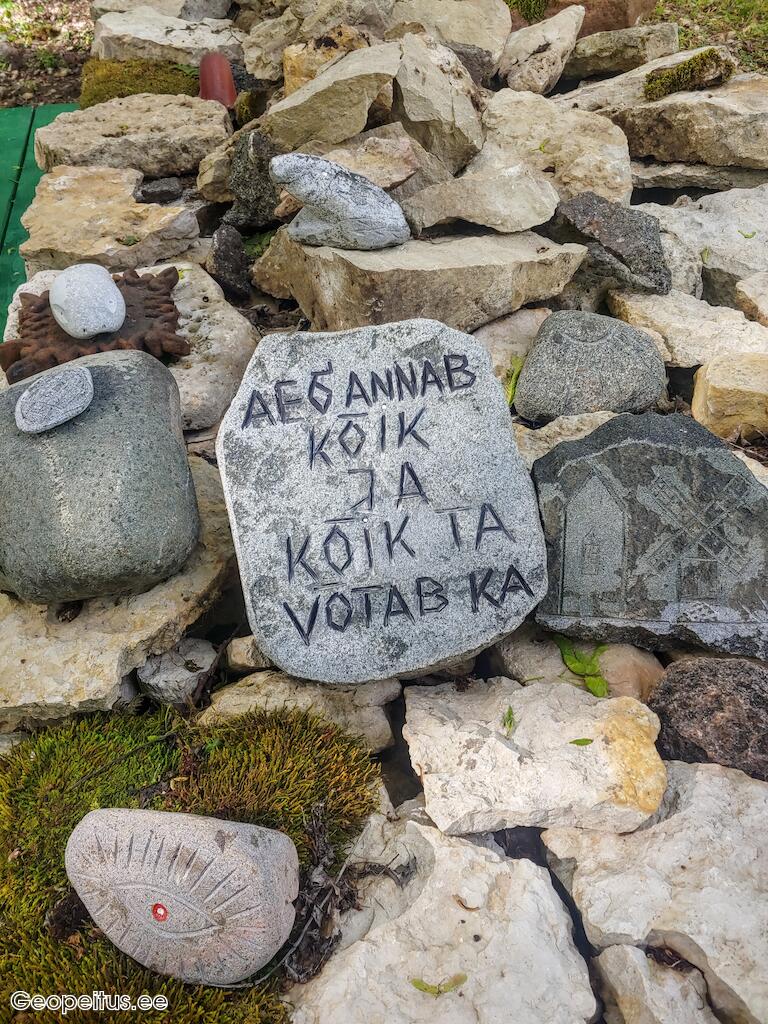 AEG ANNAB
KÕIK
JA
KÕIK TA
VÕTAB KA
Geopeitus.ee